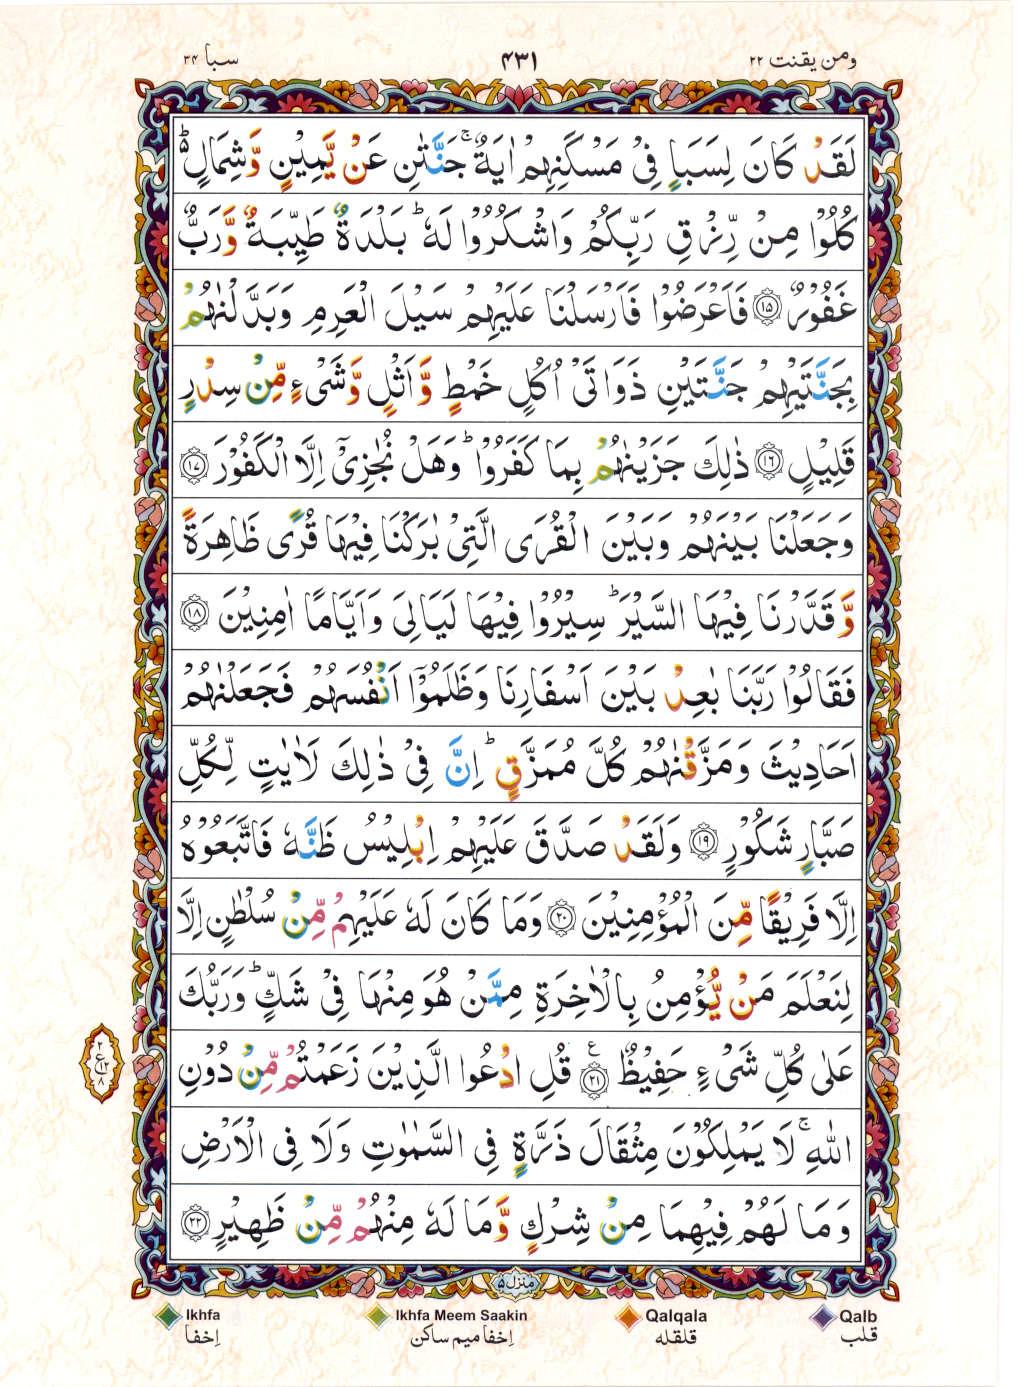 ومن يقنت ۲۲
۴۳۱
سبا ۳۴
لَقَدْ كَانَ لِسَبَاٍ فِیْ مَسْكَنِهِمْ اٰیَةٌ ۚ جَنَّتٰنِ عَنْ یَّمِیْنٍ وَّشِمَالٍ ؕ۬
كُلُوْا مِنْ رِّزْقِ رَبِّكُمْ وَاشْكُرُوْا لَهٗ ؕ بَلْدَةٌ طَیِّبَةٌ وَّرَبٌّ
غَفُوْرٌ ۝۱۵ فَاَعْرَضُوْا فَاَرْسَلْنَا عَلَیْهِمْ سَیْلَ الْعَرِمِ وَبَدَّلْنٰهُمْ
بِجَنَّتَیْهِمْ جَنَّتَیْنِ ذَوَاتَیْ اُكُلٍ خَمْطٍ وَّاَثْلٍ وَّشَیْءٍ مِّنْ سِدْرٍ
قَلِیْلٍ ۝۱۶ ذٰلِكَ جَزَیْنٰهُمْ بِمَا كَفَرُوْا ؕ وَهَلْ نُجٰزِیْۤ اِلَّا الْكَفُوْرَ ۝۱۷
وَجَعَلْنَا بَیْنَهُمْ وَبَیْنَ الْقُرَی الَّتِیْ بٰرَكْنَا فِیْهَا قُرًی ظَاهِرَةً
وَّقَدَّرْنَا فِیْهَا السَّیْرَ ؕ سِیْرُوْا فِیْهَا لَیَالِیَ وَاَیَّامًا اٰمِنِیْنَ ۝۱۸
فَقَالُوْا رَبَّنَا بٰعِدْ بَیْنَ اَسْفَارِنَا وَظَلَمُوْۤا اَنْفُسَهُمْ فَجَعَلْنٰهُمْ
اَحَادِیْثَ وَمَزَّقْنٰهُمْ كُلَّ مُمَزَّقٍ ؕ اِنَّ فِیْ ذٰلِكَ لَاٰیٰتٍ لِّكُلِّ
صَبَّارٍ شَكُوْرٍ ۝۱۹ وَلَقَدْ صَدَّقَ عَلَیْهِمْ اِبْلِیْسُ ظَنَّهٗ فَاتَّبَعُوْهُ
اِلَّا فَرِیْقًا مِّنَ الْمُؤْمِنِیْنَ ۝۲۰ وَمَا كَانَ لَهٗ عَلَیْهِمْ مِّنْ سُلْطٰنٍ اِلَّا
لِنَعْلَمَ مَنْ یُّؤْمِنُ بِالْاٰخِرَةِ مِمَّنْ هُوَ مِنْهَا فِیْ شَكٍّ ؕ وَرَبُّكَ
عَلٰی كُلِّ شَیْءٍ حَفِیْظٌ ۝۲۱ ع قُلِ ادْعُوا الَّذِیْنَ زَعَمْتُمْ مِّنْ دُوْنِ
اللّٰهِ ۚ لَا یَمْلِكُوْنَ مِثْقَالَ ذَرَّةٍ فِی السَّمٰوٰتِ وَلَا فِی الْاَرْضِ
وَمَا لَهُمْ فِیْهِمَا مِنْ شِرْكٍ وَّمَا لَهٗ مِنْهُمْ مِّنْ ظَهِیْرٍ ۝۲۲
۲
ع ۱۲
۸
منزل ۵
Ikhfa
Ikhfa Meem Saakin
Qalqala
Qalb
اِخفا
اِخفا میم ساکن
قلقله
قلب